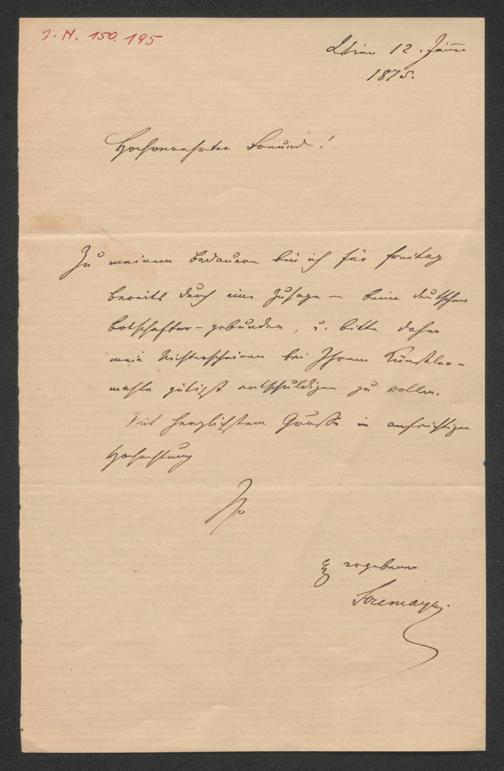 J. N. 150.195
Wien 12. Jänner
1875.
Hochverehrter Freund!
Zu meinem Bedauern bin ich für Freitag
bereits durch eine Zusage – beim deutschen
Botschafter – gebunden, u. bitte daher
mein Nichterscheinen bei Ihrem Künstler-
mahle gütigst entschuldigen zu wollen.
Mit herzlichstem Gruße in aufrichtiger
Hochachtung
Ihr
ergebener
Stremayr.